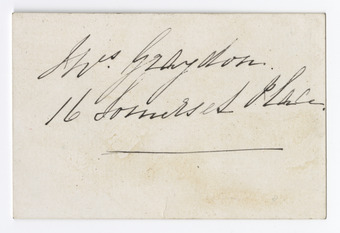 Mrs. Graydon.
16 Somerset Place.